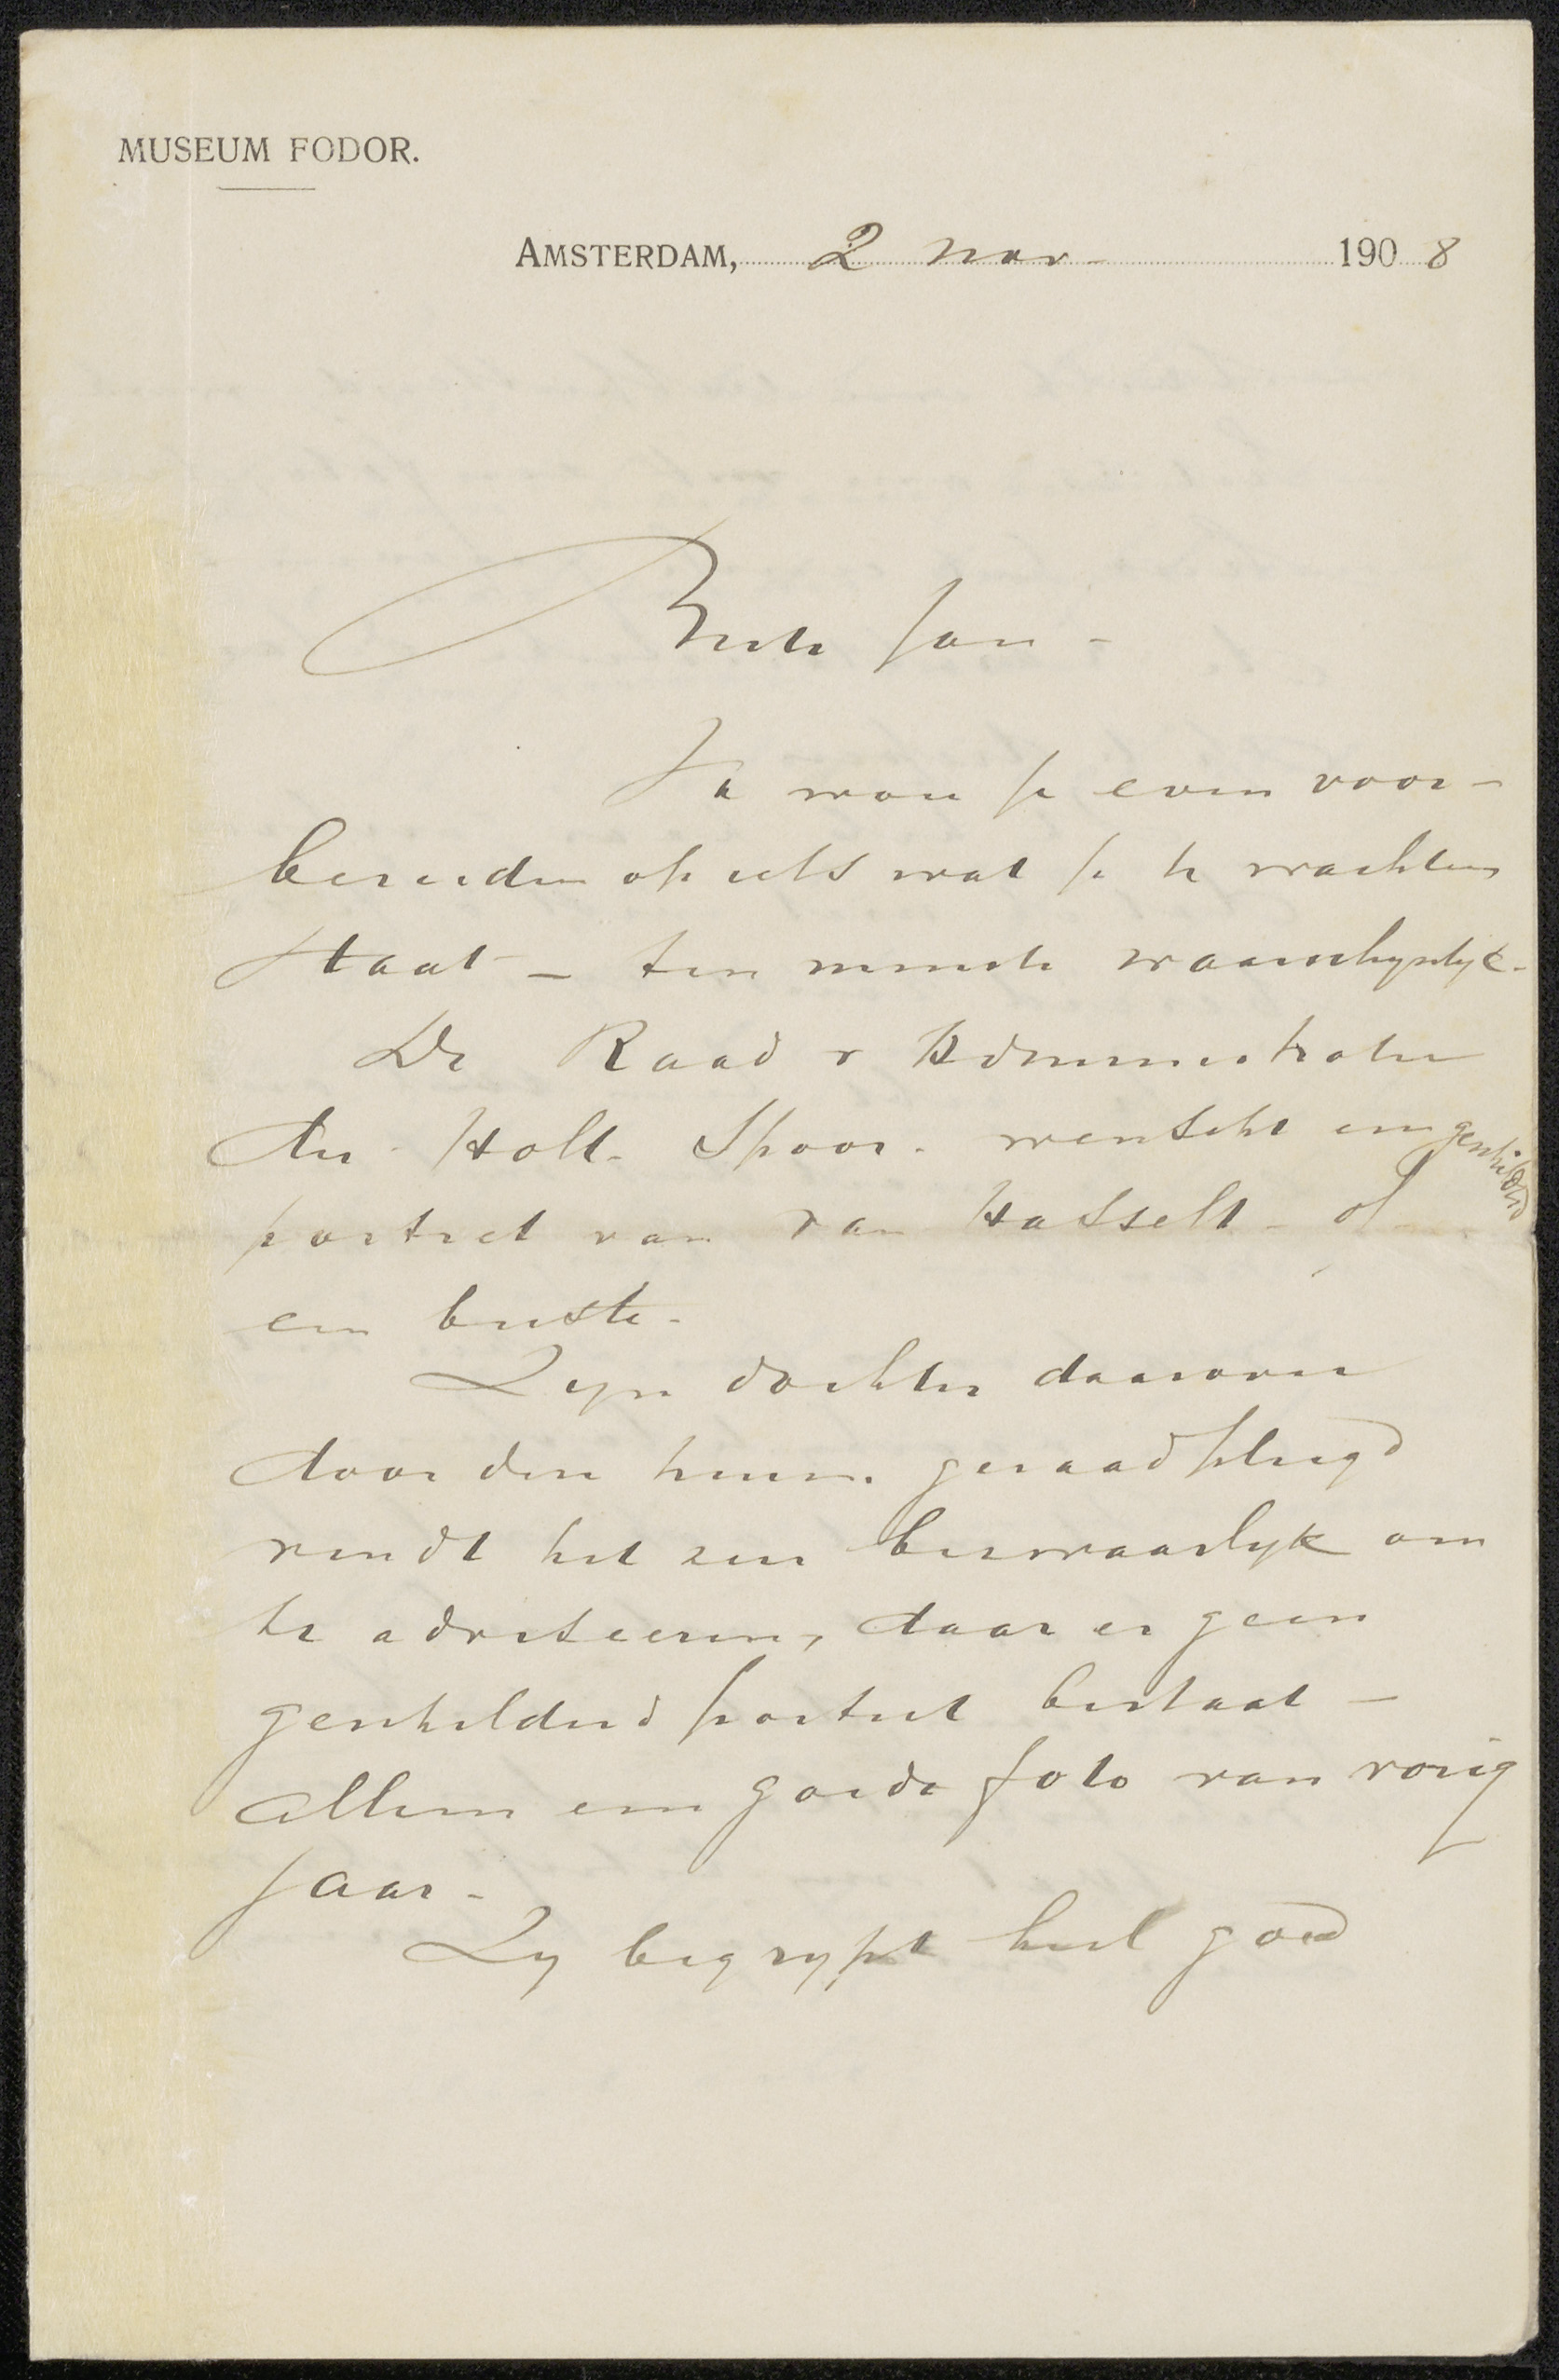 MUSEUM FODOR.
AMSTERDAM, 2 nov - 1908
Beste Jan -
Ik wou je even voor-
bereiden op iets wat je te wachten
staat - ten minste waarschynlyk -
De Raad v Administratie
der Holl. Spoor. wenscht een geschilderd
portret van van Hasselt - of
een buste -
Zyn dochter daarover
door den heer. geraadpleegd
vindt het zeer bezwaarlyk om
te adviseeren, daar er geen
geschilderd portret bestaat -
alleen een goede foto van vorig
jaar -
Zy begrypt heel goed